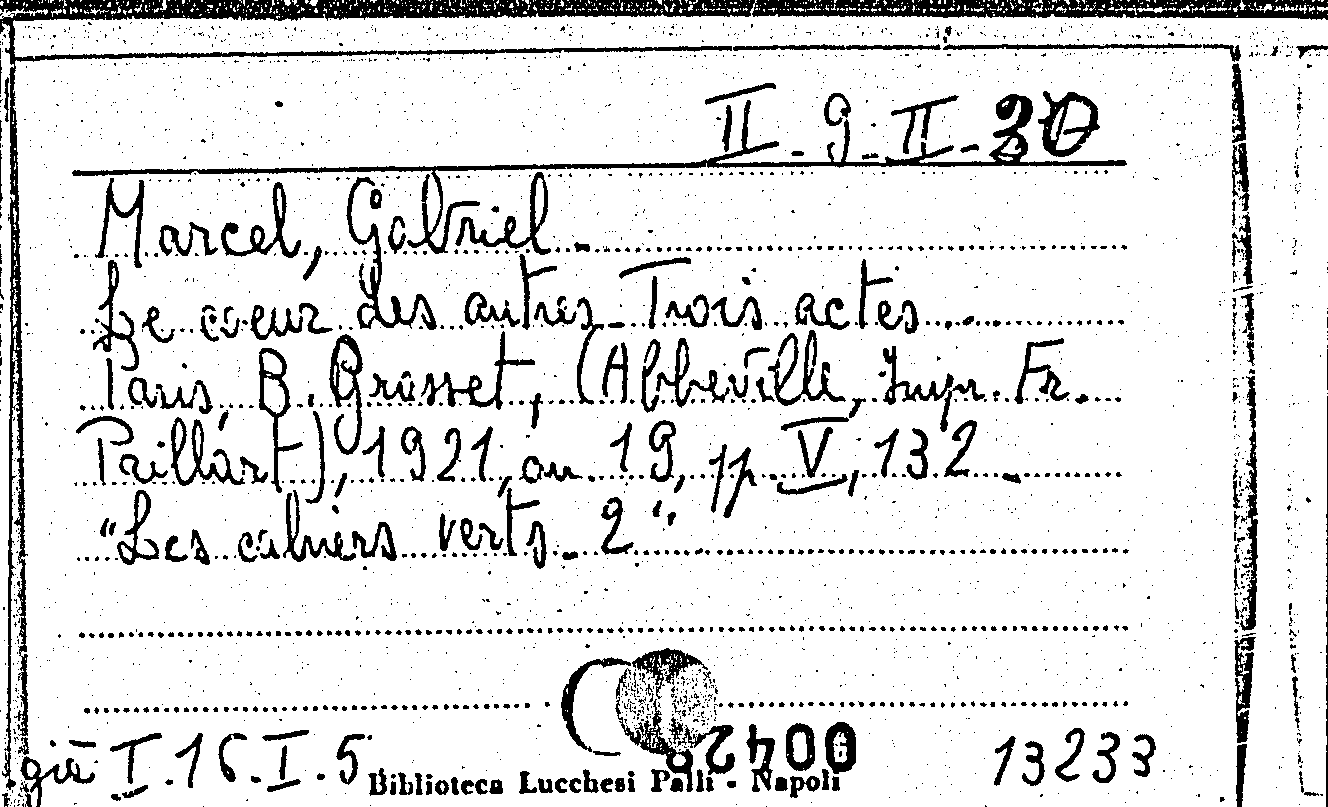 II - 9 - II - 30
Marcel, Gabriel -
Le coeur des autres - Trois actes ...
Paris, B. Grasset, (Abbeville, Impr. Fr.
Paillart), 1921, in 19, pp V, 132 -
"Les cahiers verts - 2".
già I.16.I.5
Biblioteca Lucchesi Palli - Napoli
13233